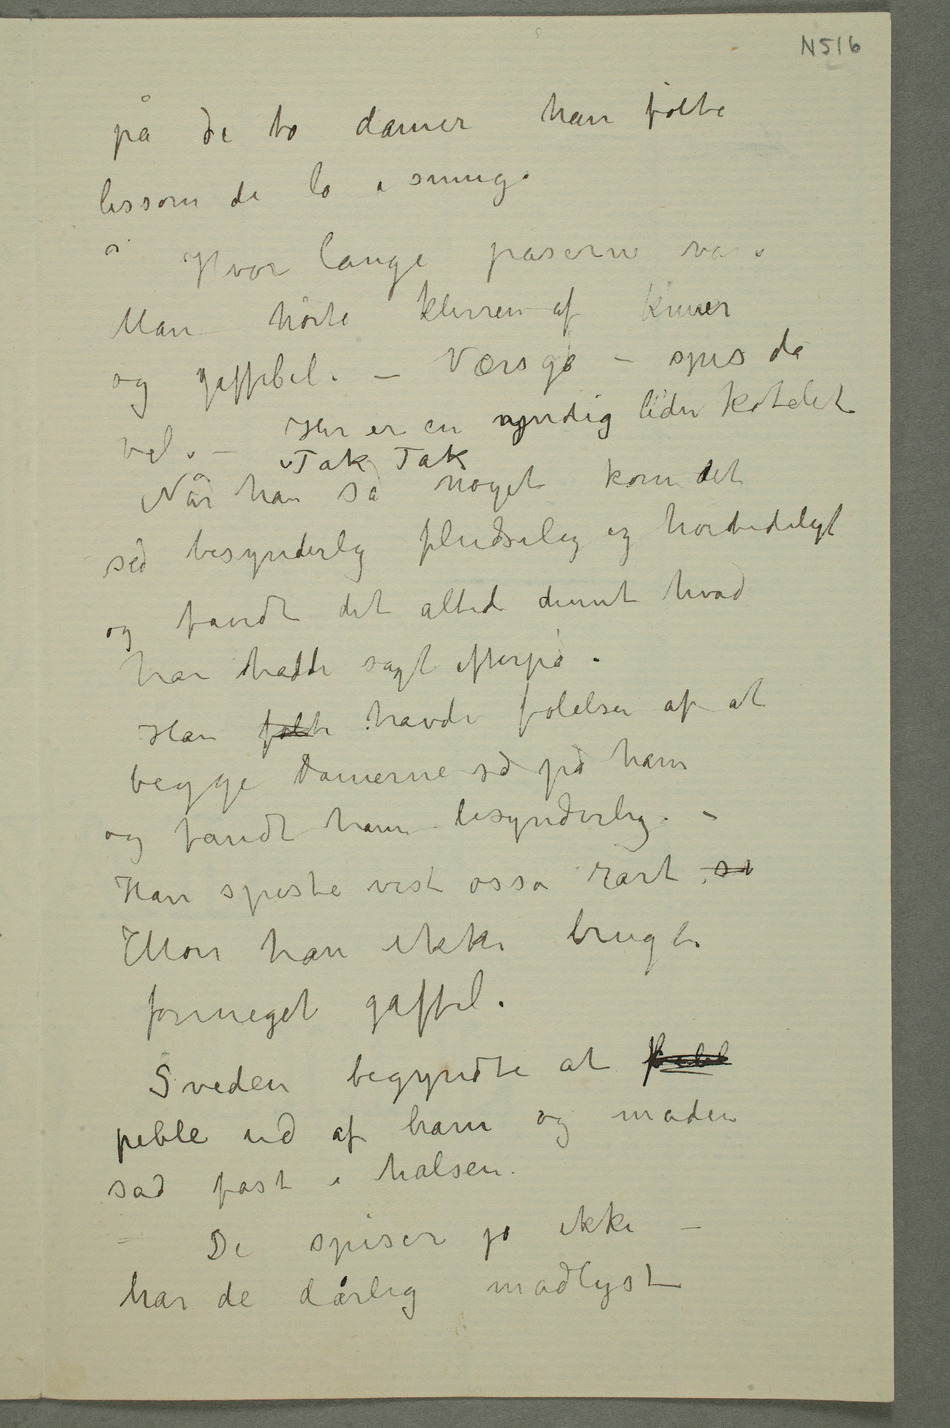 N516
på de to damer han følte
lissom de lo i smug.
Hvor lange paserne var.
Man hørte klirren af kniver
og gaffbel. – Værsgo – spis da
vel. – Her er en nyndig liden kotelet
Tak Tak
Når han sa noget kom det
så besynderlig pludselig og hørbedeligt
og fandt det altid dumt hvad
han hadde sagt efterpå.
Han følte havde følelsen af at
begge damerne så på ham
og fandt ham besynderlig. –
Han spiste vist ossa rart så
Mon han ikke brugte
formeget gaffel.
Sveden begyndte at
peble ud af ham og maden
sad fast i halsen.
– De spiser jo ikke –
har de dårlig madlyst